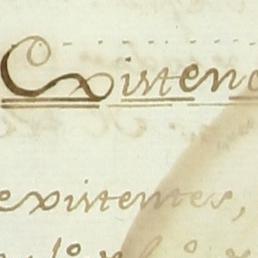 Existenc
existentes,